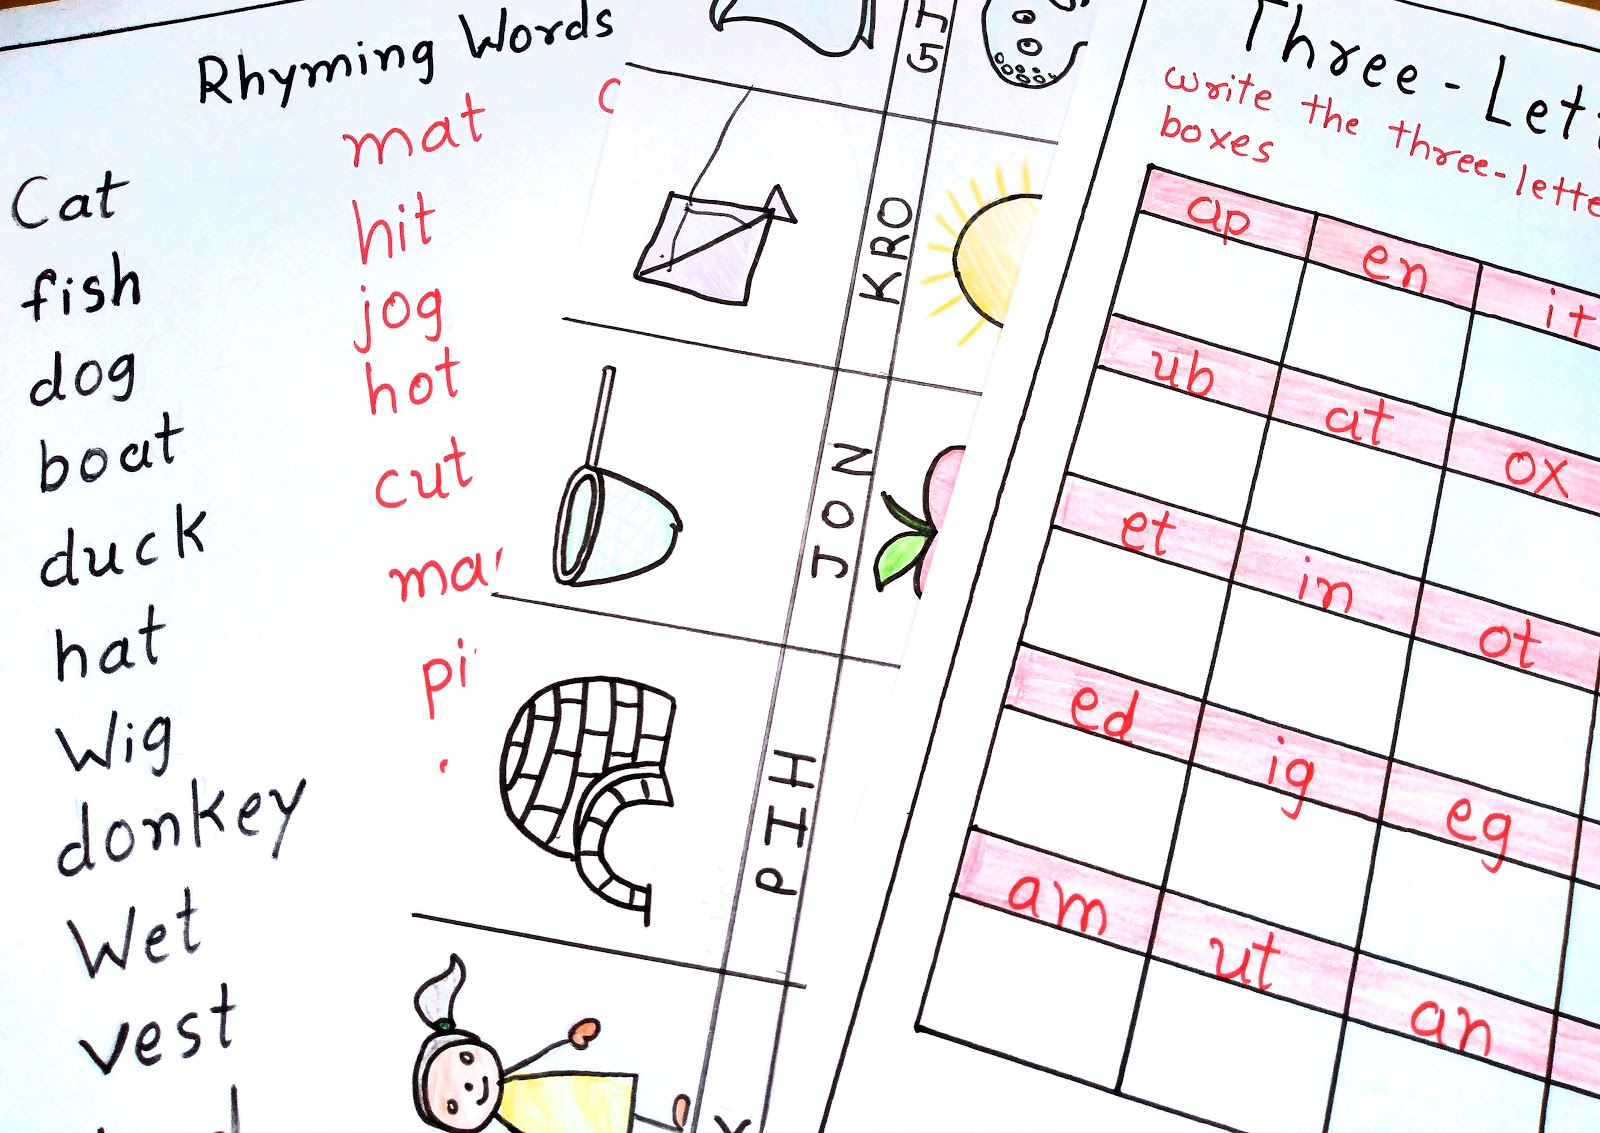 Rhyming Words
Cat mat
fish hit
dog jog
boat hot
duck cut
hat
Wig
donkey
Wet
vest
J
5
KRO
JON
PIH
Three-
write the three-
boxes
ap en it
ub at ox
et in ot
ed ig eg
am ut an